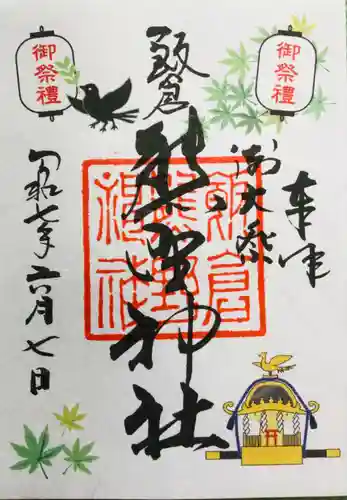 御祭禮
御祭禮
奉拝
例大祭
飯倉
熊野神社
飯倉
熊野
神社
令和七年六月七日